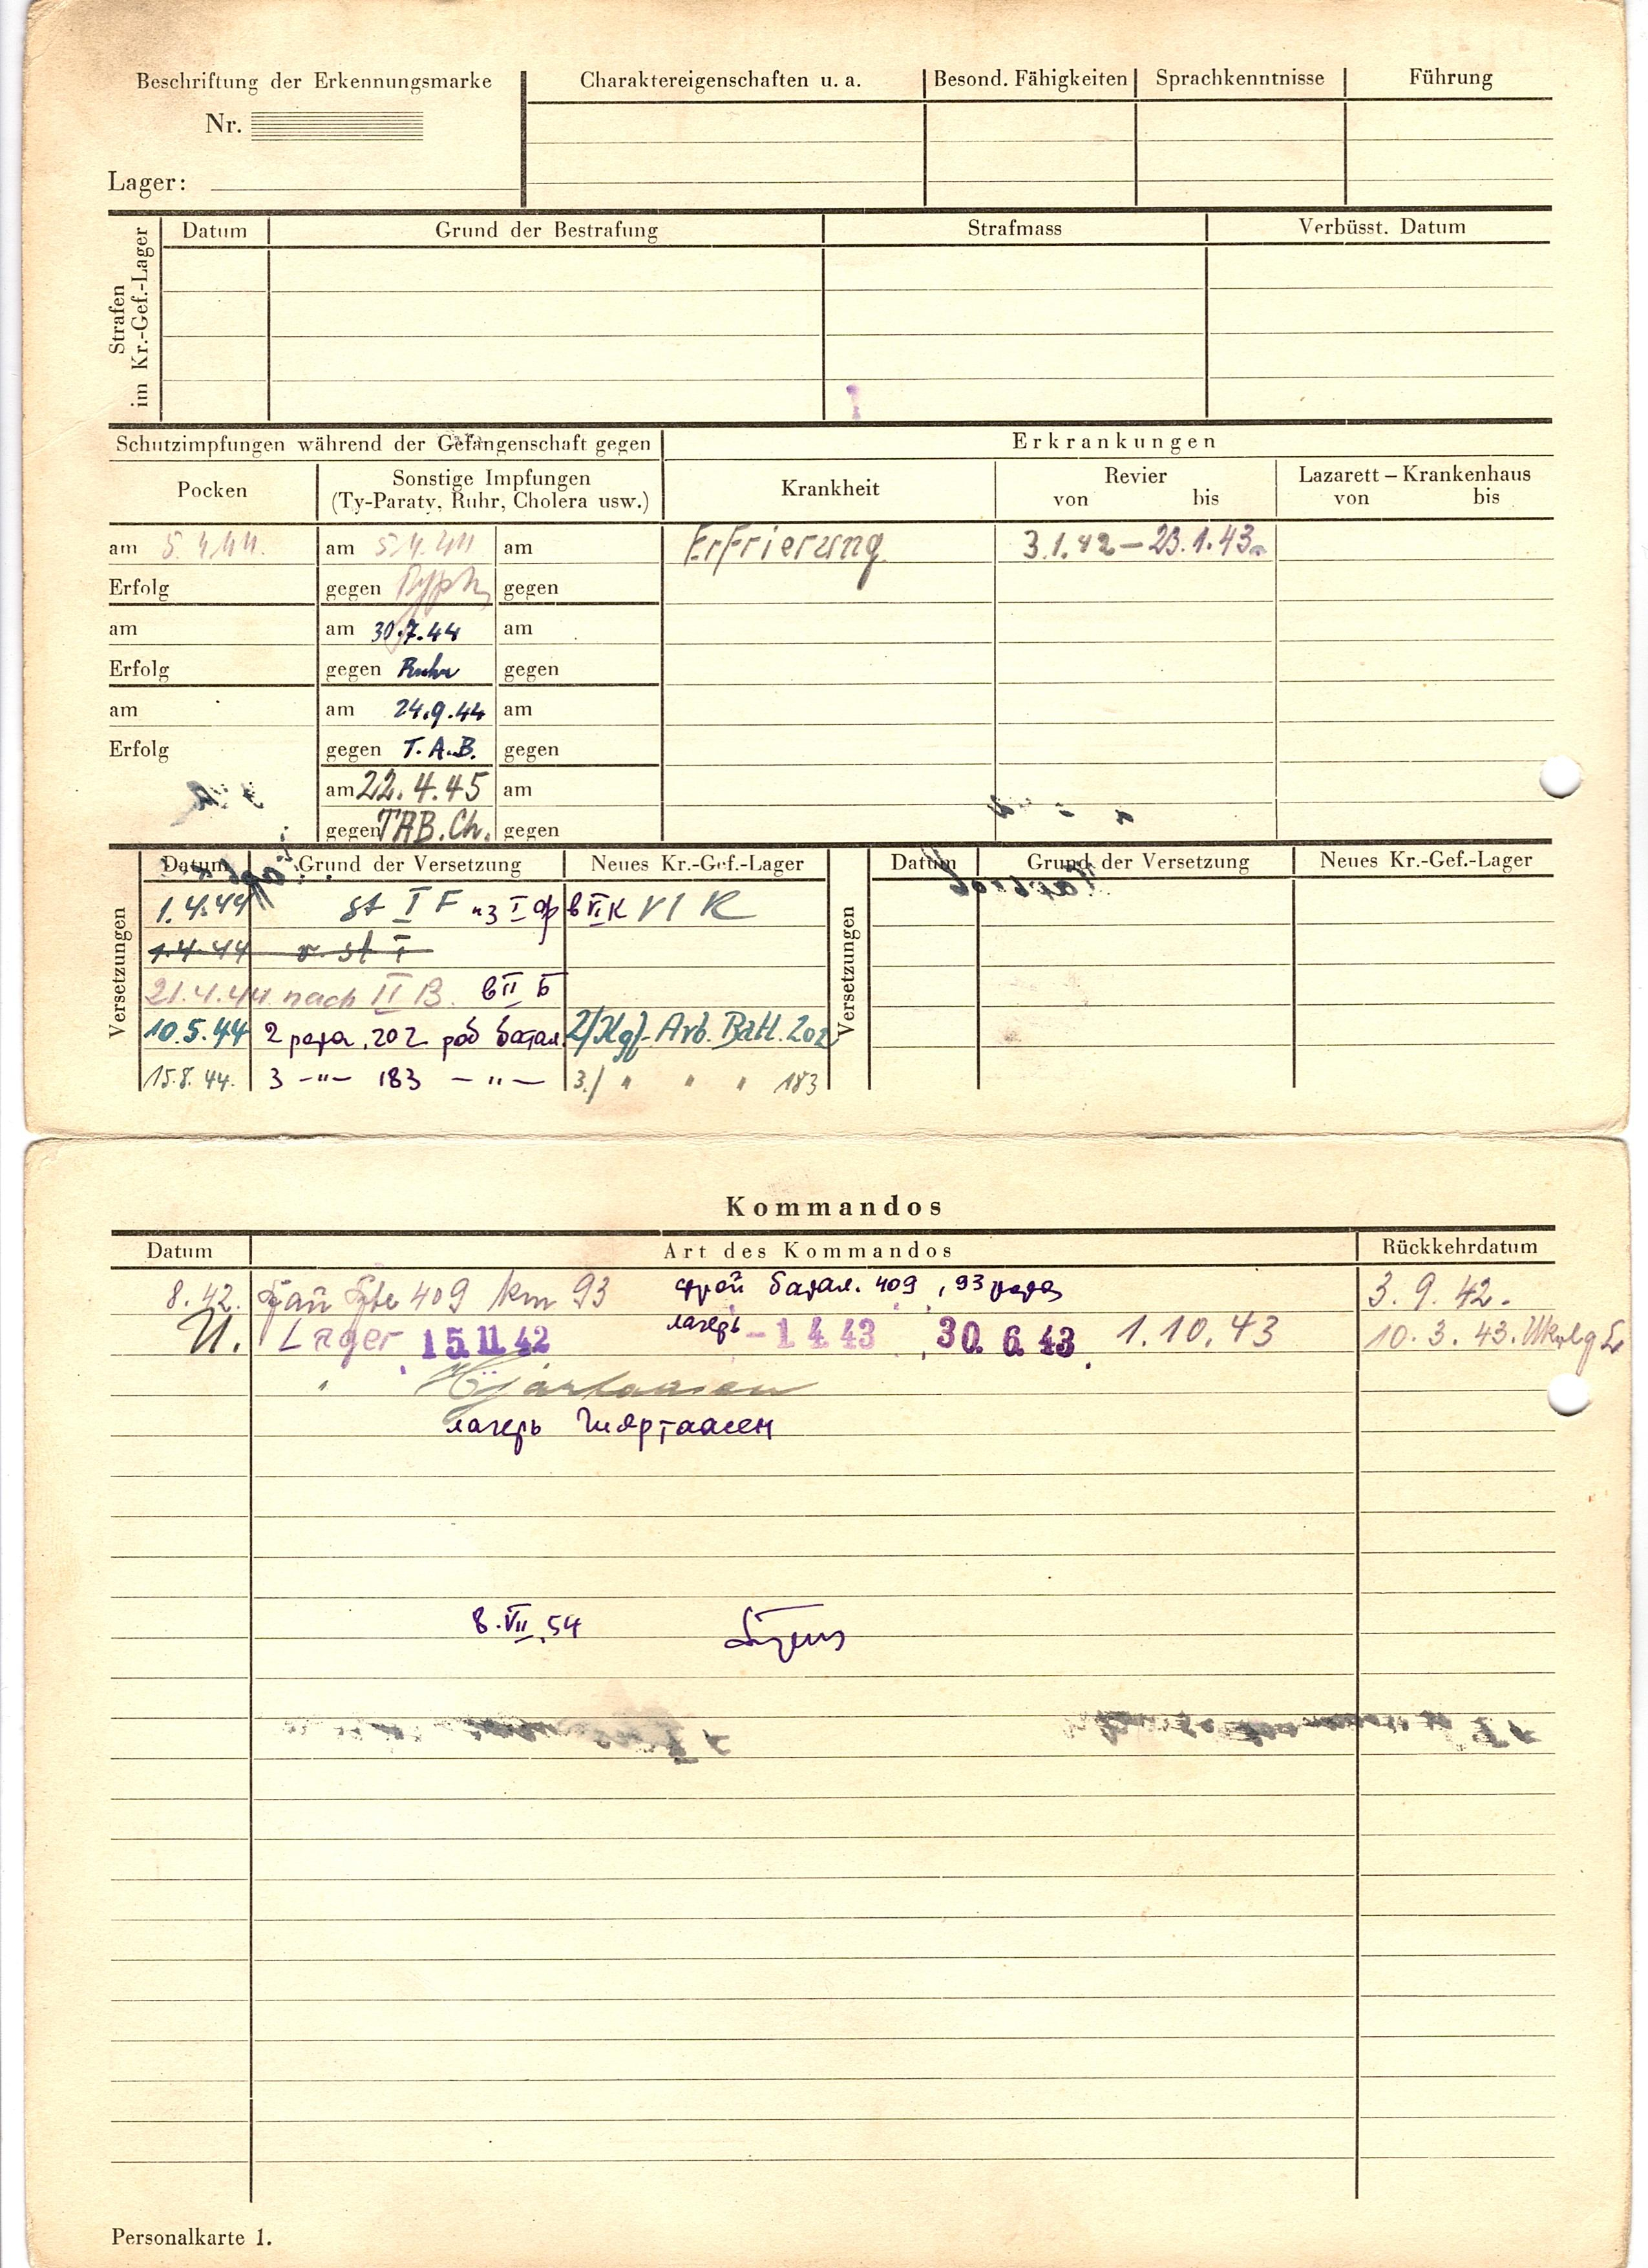 Beschriftung der Erkennungsmarke
Charaktereigenschaften u. a.
Besond. Fähigkeiten
Sprachkenntnisse
Führung
Nr.
Lager:
Strafen
im Kr.-Gef.-Lager
Datum
Grund der Bestrafung
Strafmass
Verbüsst. Datum
Schutzimpfungen während der Gefangenschaft gegen
Erkrankungen
Pocken
Sonstige Impfungen
(Ty-Paraty, Ruhr, Cholera usw.)
Krankheit
Revier
von bis
Lazarett – Krankenhaus
von bis
am 5.4.44. am 5.4.44 am Erfrierung 3.1.42 – 23.1.43
Erfolg gegen gegen
am am 30.7.44 am
Erfolg gegen Ruhr gegen
am am 24.9.44 am
Erfolg gegen T.A.B. gegen
am 22.4.45 am
gegen TAB.Ch. gegen
Versetzungen
Datum Grund der Versetzung Neues Kr.-Gef.-Lager
1.4.44 st I F из I ф в VI К VI K
1.4.44 v. st I
21.4.44 nach II B. в II Б
10.5.44 2 рота, 202 раб батал. 2/Kgf. Arb. Batl. 202
15.8.44. 3 –"– 183 –"– 3./ " " " 183
Versetzungen
Datum Grund der Versetzung Neues Kr.-Gef.-Lager
Kommandos
Datum Art des Kommandos Rückkehrdatum
8.42. 409 km 93 строй батал. 409, 93 рота 3.9.42.
Lager 15.11.42 лагерь -1 4 43 30. 6. 43 1.10.43 10.3.43.
"
лагерь
8.VII.54
Personalkarte 1.